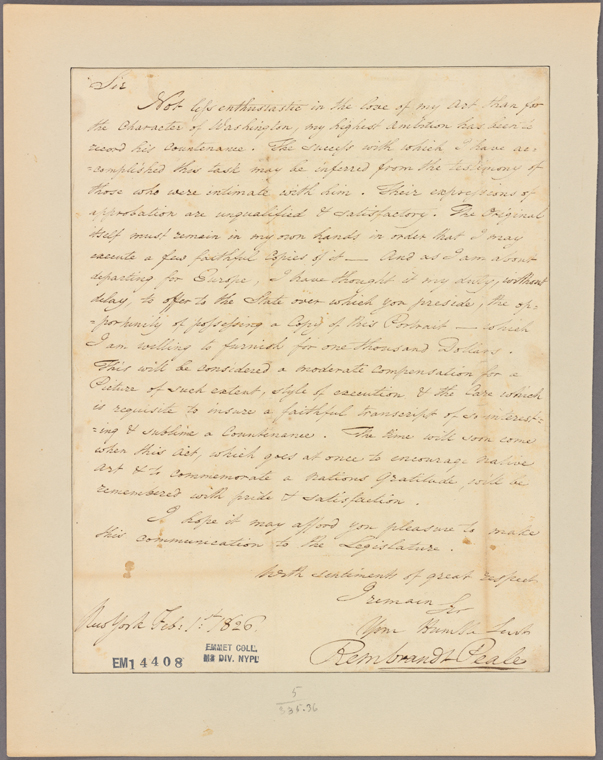 Sir
Not less enthusiastic in the love of my Art than for
the Character of Washington, my highest Ambition has been to
record his Countenance. The success with which I have ac=
=complished this task may be inferred from the testimony of
those who were intimate with him. Their expressions of
approbation are unqualified & satisfactory. The Original
itself must remain in my own hands in order that I may
execute a few faithful Copies of it — And as I am about
departing for Europe, I have thought it my duty, without
delay, to offer to the State over which you preside, the op=
=portunity of possessing a Copy of this Portrait — which
I am willing to furnish for one thousand Dollars.
This will be considered a moderate Compensation for a
Picture of such extent, style of execution & the Care which
is requisite to insure a faithful transcript of so interest=
=ing & sublime a Countenance. The time will soon come
when this Act, which goes at once to encourage native
Art & to commemorate a Nations Gratitude, will be
remembered with pride & satisfaction.
I hope it may afford you pleasure to make
this communication to the Legislature.
With sentiments of great respect
I remain Sir
Your Humble Servt
New York Feb. 1st 1826.
Rembrandt Peale
EMMET COLL.
MS DIV. NYPL
EM14408
5